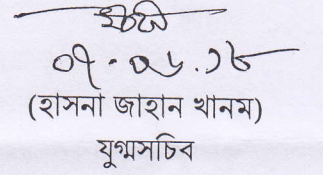 ০৭.০৬.১৮
(হাসনা জাহান খানম)
যুগ্মসচিব